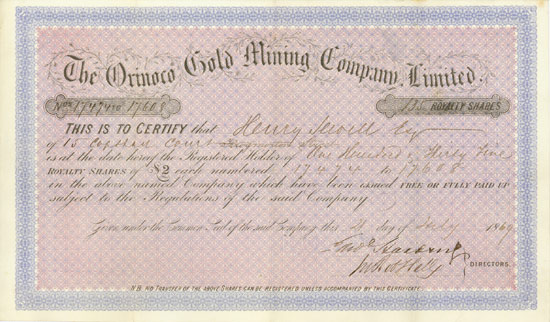 The Orinoco Gold Mining Company, Limited.
Nos. 17474 to 17608 135 ROYALTY SHARES
THIS IS TO CERTIFY that Henry Sewell Esq
of 15 Copthall Court
is at the date hereof the Registered Holder of One Hundred & Thirty Five
ROYALTY SHARES OF £2 each numbered 17474 to 17608
in the above named Company which have been issued FREE OR FULLY PAID UP
subject to the Regulations of the said Company
Given under the Common Seal of the said Company this 2 day of July 1869
DIRECTORS.
N.B. NO TRANSFER OF THE ABOVE SHARES CAN BE REGISTERED UNLESS ACCOMPANIED BY THIS CERTIFICATE.